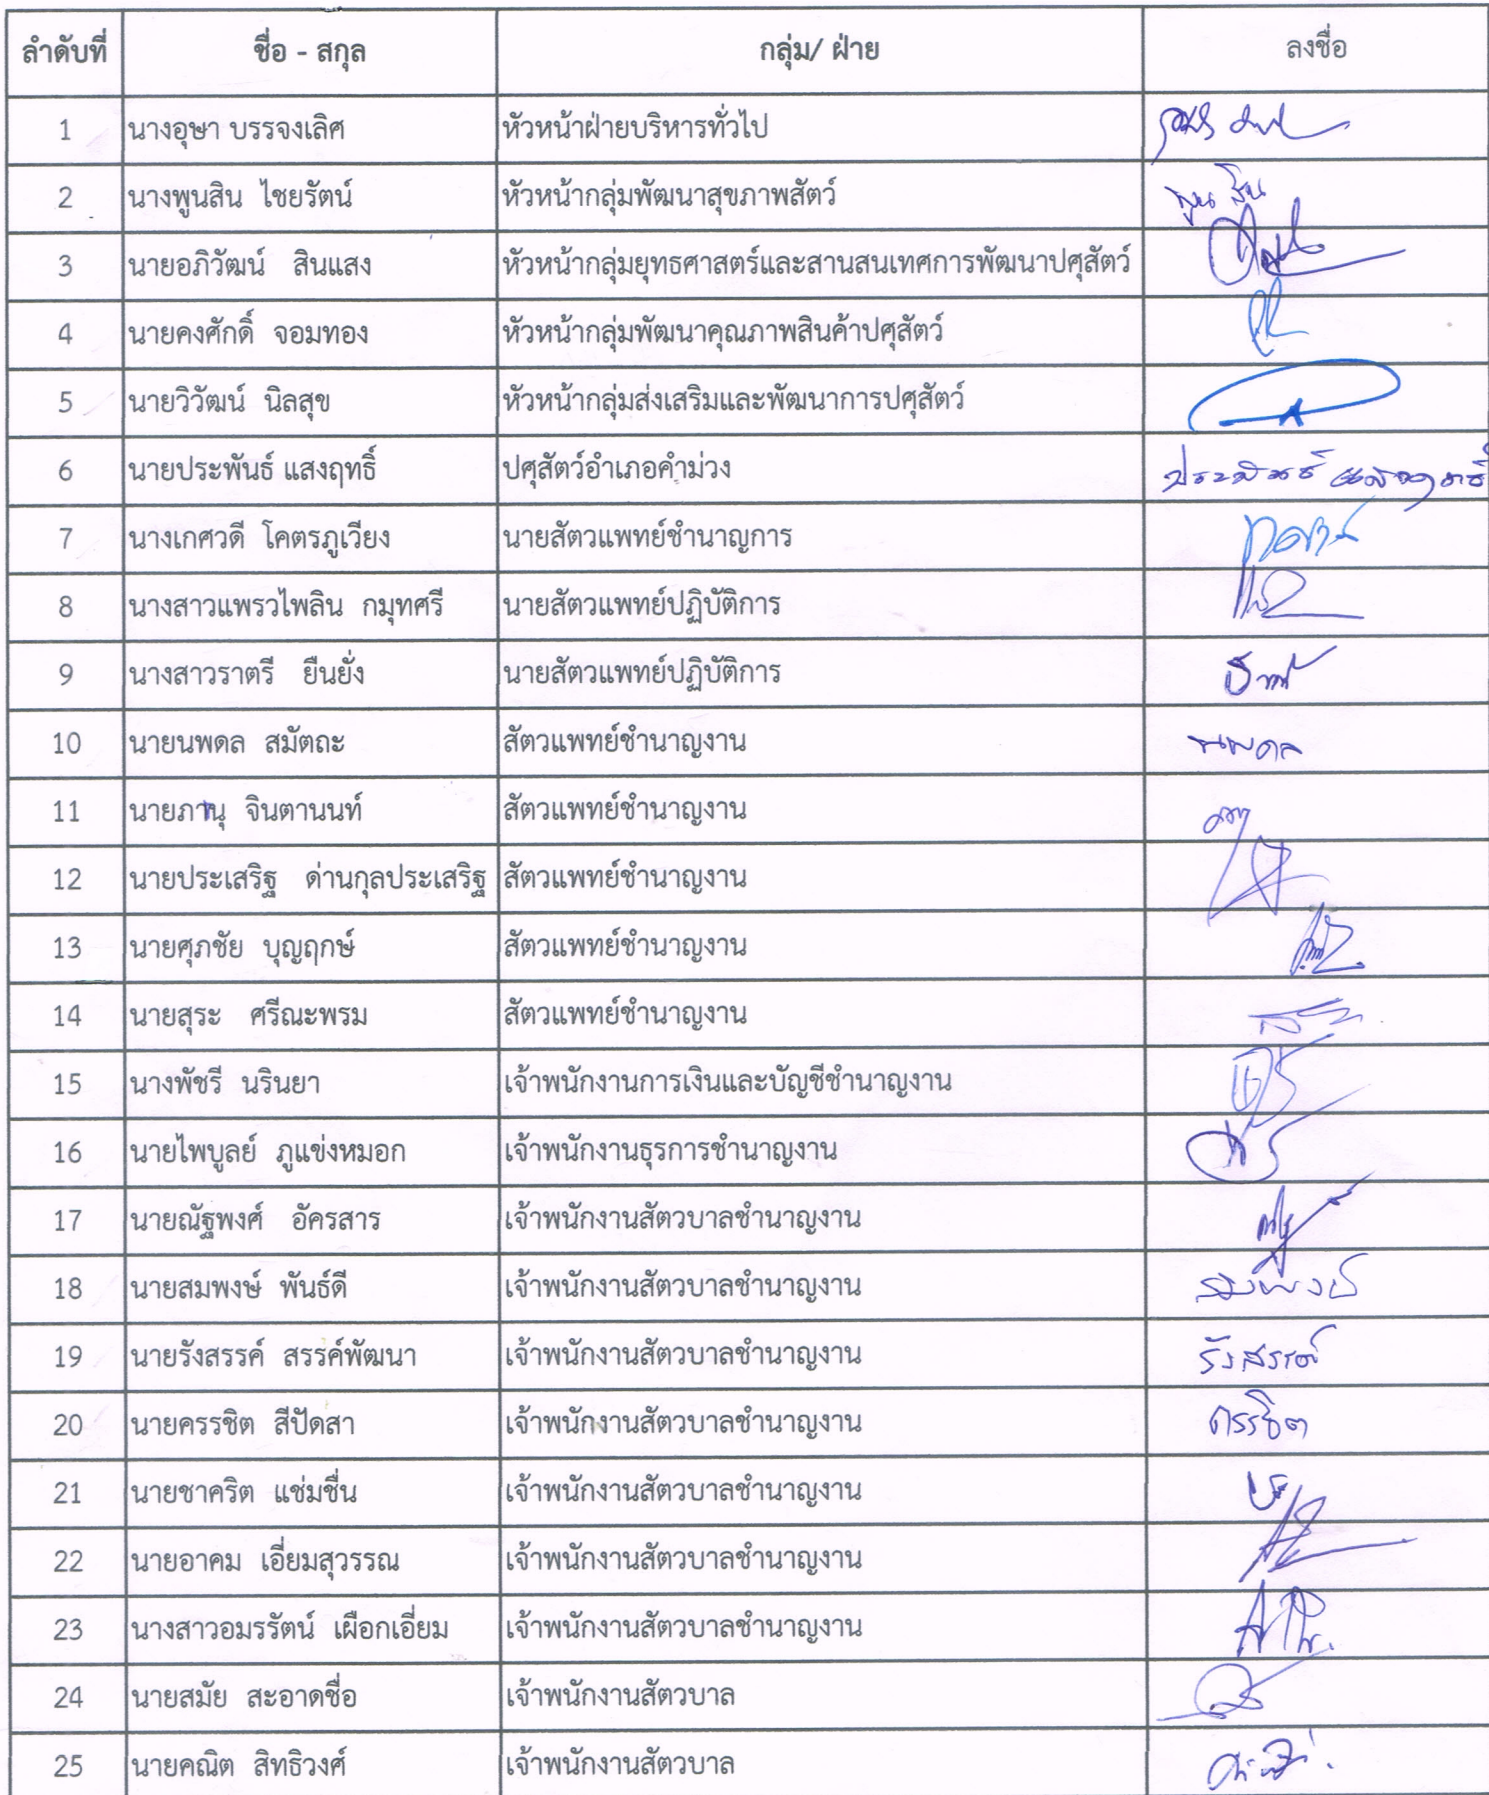 ลำดับที่ ชื่อ - สกุล กลุ่ม/ ฝ่าย ลงชื่อ
1 นางอุษา บรรจงเลิศ หัวหน้าฝ่ายบริหารทั่วไป
2 นางพูนสิน ไชยรัตน์ หัวหน้ากลุ่มพัฒนาสุขภาพสัตว์ พูนสิน
3 นายอภิวัฒน์ สินแสง หัวหน้ากลุ่มยุทธศาสตร์และสานสนเทศการพัฒนาปศุสัตว์
4 นายคงศักดิ์ จอมทอง หัวหน้ากลุ่มพัฒนาคุณภาพสินค้าปศุสัตว์
5 นายวิวัฒน์ นิลสุข หัวหน้ากลุ่มส่งเสริมและพัฒนาการปศุสัตว์
6 นายประพันธ์ แสงฤทธิ์ ปศุสัตว์อำเภอคำม่วง ประพันธ์ แสงฤทธิ์
7 นางเกศวดี โคตรภูเวียง นายสัตวแพทย์ชำนาญการ
8 นางสาวแพรวไพลิน กมุทศรี นายสัตวแพทย์ปฏิบัติการ
9 นางสาวราตรี ยืนยั่ง นายสัตวแพทย์ปฏิบัติการ
10 นายนพดล สมัตถะ สัตวแพทย์ชำนาญงาน นพดล
11 นายภานุ จินตานนท์ สัตวแพทย์ชำนาญงาน
12 นายประเสริฐ ด่านกุลประเสริฐ สัตวแพทย์ชำนาญงาน
13 นายศุภชัย บุญฤกษ์ สัตวแพทย์ชำนาญงาน
14 นายสุระ ศรีณะพรม สัตวแพทย์ชำนาญงาน
15 นางพัชรี นรินยา เจ้าพนักงานการเงินและบัญชีชำนาญงาน
16 นายไพบูลย์ ภูแข่งหมอก เจ้าพนักงานธุรการชำนาญงาน
17 นายณัฐพงศ์ อัครสาร เจ้าพนักงานสัตวบาลชำนาญงาน
18 นายสมพงษ์ พันธ์ดี เจ้าพนักงานสัตวบาลชำนาญงาน สมพงษ์
19 นายรังสรรค์ สรรค์พัฒนา เจ้าพนักงานสัตวบาลชำนาญงาน รังสรรค์
20 นายครรชิต สีปัดสา เจ้าพนักงานสัตวบาลชำนาญงาน ครรชิต
21 นายชาคริต แช่มชื่น เจ้าพนักงานสัตวบาลชำนาญงาน
22 นายอาคม เอี่ยมสุวรรณ เจ้าพนักงานสัตวบาลชำนาญงาน
23 นางสาวอมรรัตน์ เผือกเอี่ยม เจ้าพนักงานสัตวบาลชำนาญงาน
24 นายสมัย สะอาดชื่อ เจ้าพนักงานสัตวบาล
25 นายคณิต สิทธิวงศ์ เจ้าพนักงานสัตวบาล